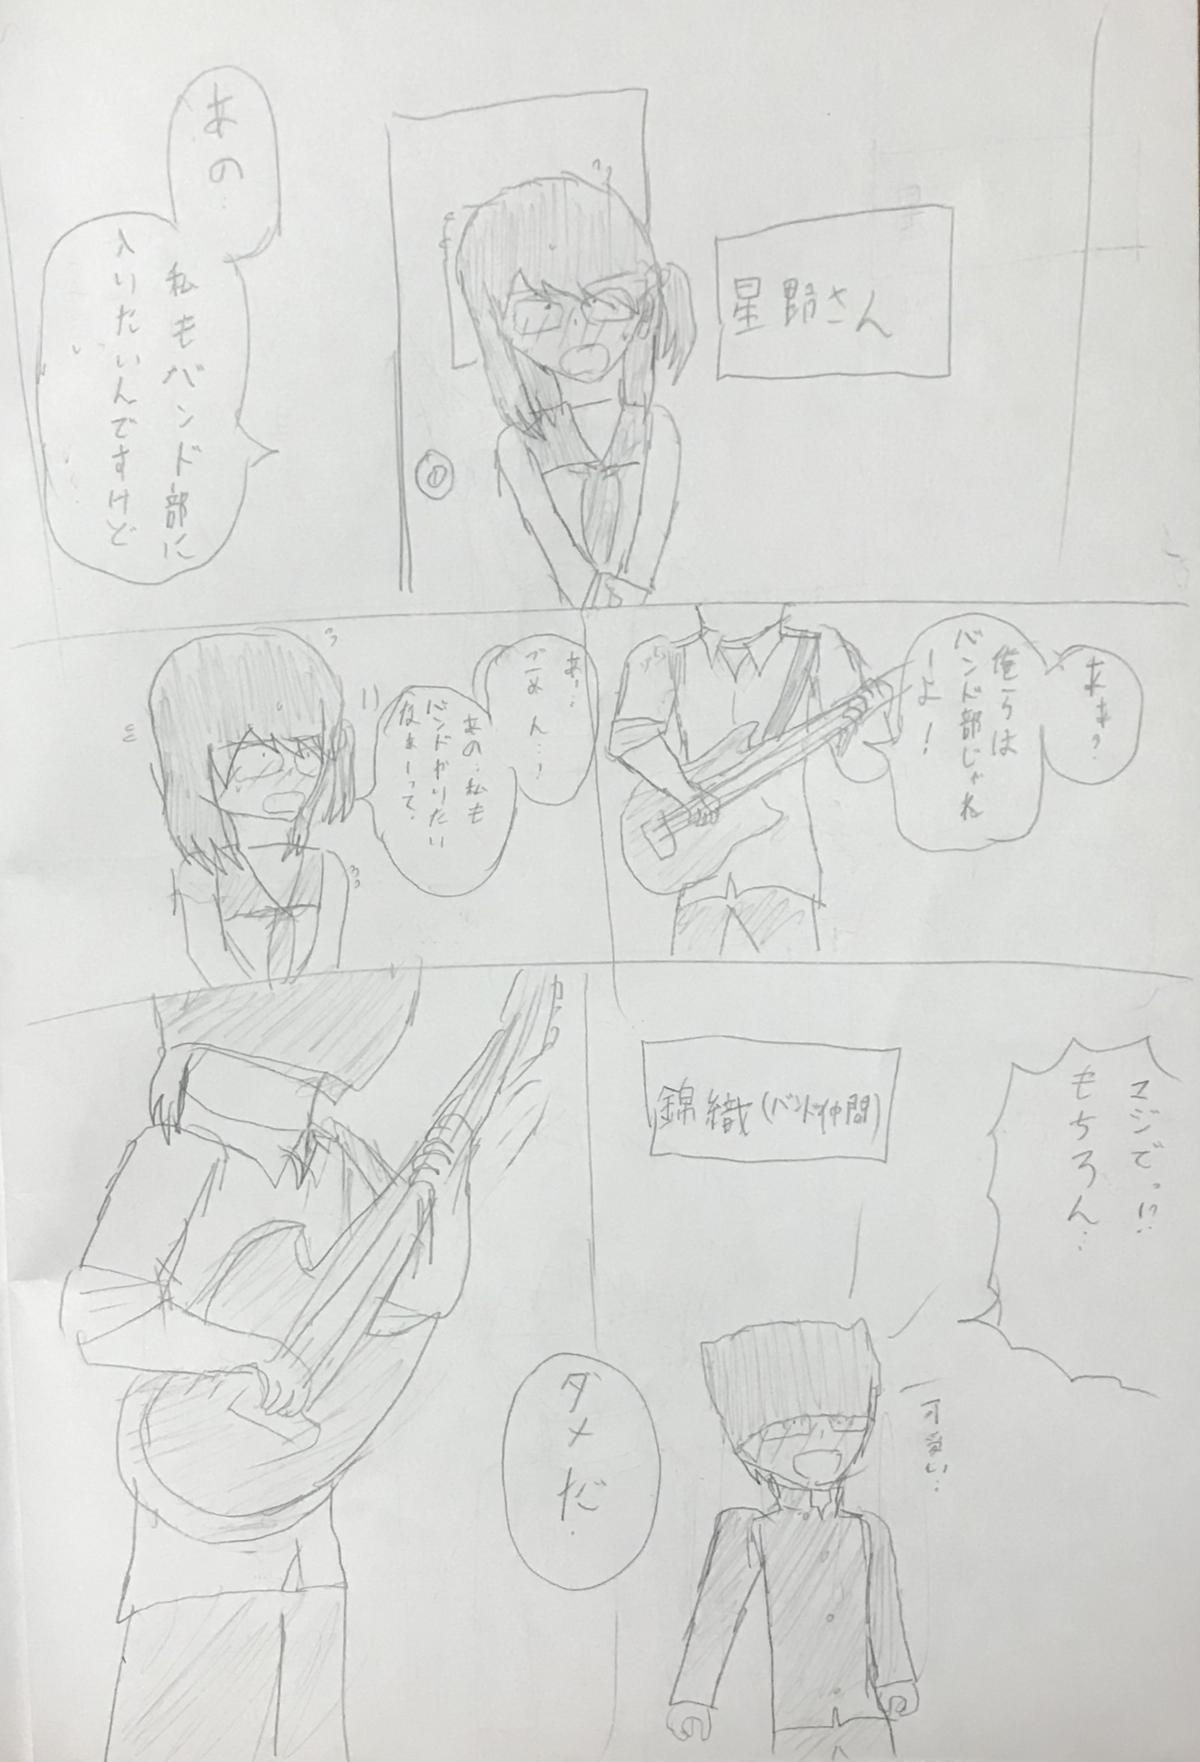 星野さん
あの
私もバンド部に
入りたいんですけど
ああ?
俺らは
バンド部じゃね
ーよ!
あ…
ごめん…
あの…私も
バンドやりたい
なぁーって
マジでっ!!
もちろん…
錦織(バンド仲間)
可愛い…
ダメだ